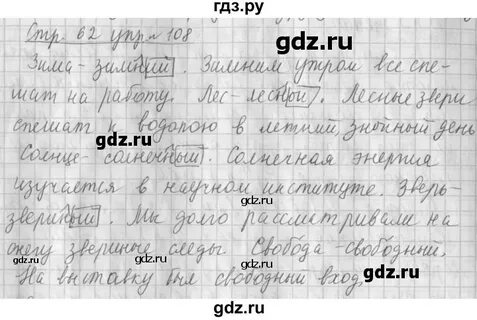 гдз.ру
Стр. 62 упр. 108
Зима - зимний. Зимним утром все спе-
шат на работу. Лес - лесной. Лесные звери
спешат к водопою в летний, знойный день
Солнце - солнечный. Солнечная энергия
изучается в научном институте. Зверь-
звериный. Мы долго рассматривали на
снегу звериные следы. Свобода - свободный.
На выставку был свободный вход.
gdz.ru
gdz.ru
gdz.ru
gdz.ru
gdz.ru
gdz.ru
gdz.ru
gdz.ru
gdz.ru